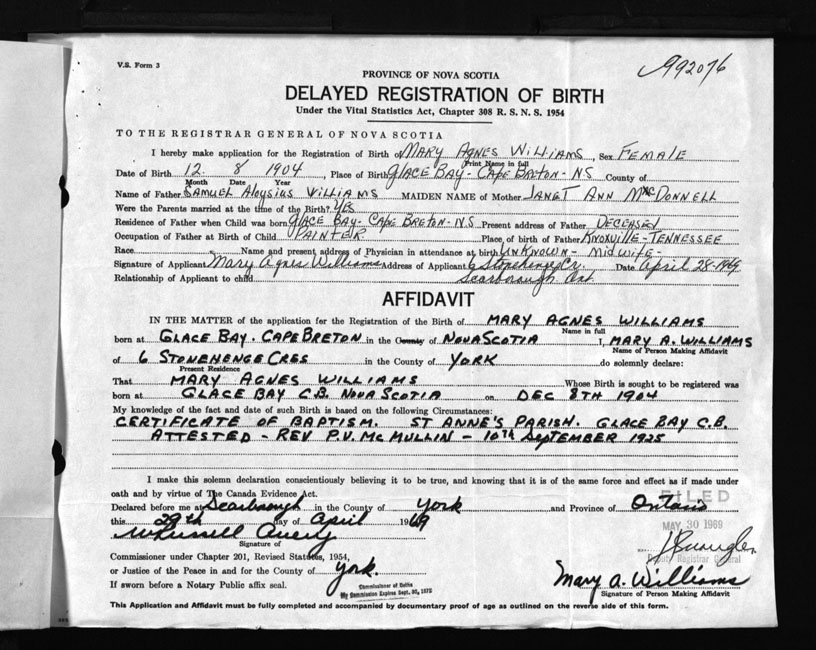 V.S. Form 3
992076
PROVINCE OF NOVA SCOTIA
DELAYED REGISTRATION OF BIRTH
Under the Vital Statistics Act, Chapter 308 R. S. N. S. 1954
TO THE REGISTRAR GENERAL OF NOVA SCOTIA
I hereby make application for the Registration of Birth of MARY AGNES WILLIAMS, Sex FEMALE
Print Name in full
Date of Birth 12 8 1904, Place of Birth GLACE BAY - CAPE BRETON - NS County of
Month Date Year
Name of Father SAMUEL ALOYSIUS WILLIAMS MAIDEN NAME of Mother JANET ANN MACDONNELL
Were the Parents married at the time of the Birth? YES
Residence of Father when Child was born GLACE BAY - CAPE BRETON - N.S Present address of Father DECEASED
Occupation of Father at Birth of Child PAINTER Place of birth of Father KNOXVILLE - TENNESSEE
Race Name and present address of Physician in attendance at birth UNKNOWN - MIDWIFE
Signature of Applicant Mary Agnes Williams Address of Applicant 6 Stonehenge Cr. Date April 28-1969
Relationship of Applicant to child Scarborough Ont.
AFFIDAVIT
IN THE MATTER of the application for the Registration of the Birth of MARY AGNES WILLIAMS
Name in full
born at GLACE BAY. CAPE BRETON in the County of NOVA SCOTIA I, MARY A. WILLIAMS
Name of Person Making Affidavit
of 6 STONEHENGE CRES in the County of YORK do solemnly declare:
Present Residence
That MARY AGNES WILLIAMS Whose Birth is sought to be registered was
born at GLACE BAY C.B. NOVA SCOTIA on DEC 8TH 1904
My knowledge of the fact and date of such Birth is based on the following Circumstances:
CERTIFICATE OF BAPTISM. ST ANNE'S PARISH. GLACE BAY C.B.
ATTESTED - REV P.V. MCMULLIN - 10TH SEPTEMBER 1925
I make this solemn declaration conscientiously believing it to be true, and knowing that it is of the same force and effect as if made under
oath and by virtue of The Canada Evidence Act.
Declared before me at Scarborough in the County of York and Province of Ontario
FILED
this 29th day of April 1969
MAY 30 1969
W Russell Avery
Signature of
Deputy Registrar General
Commissioner under Chapter 201, Revised Statutes, 1954,
or Justice of the Peace in and for the County of York.
If sworn before a Notary Public affix seal.
Commissioner of Oaths
My Commission Expires Sept. 30, 1970
Mary A. Williams
Signature of Person Making Affidavit
This Application and Affidavit must be fully completed and accompanied by documentary proof of age as outlined on the reverse side of this form.